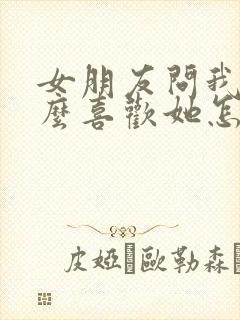 女朋友問我
麼喜歡她怎
皮婭 歐勒森